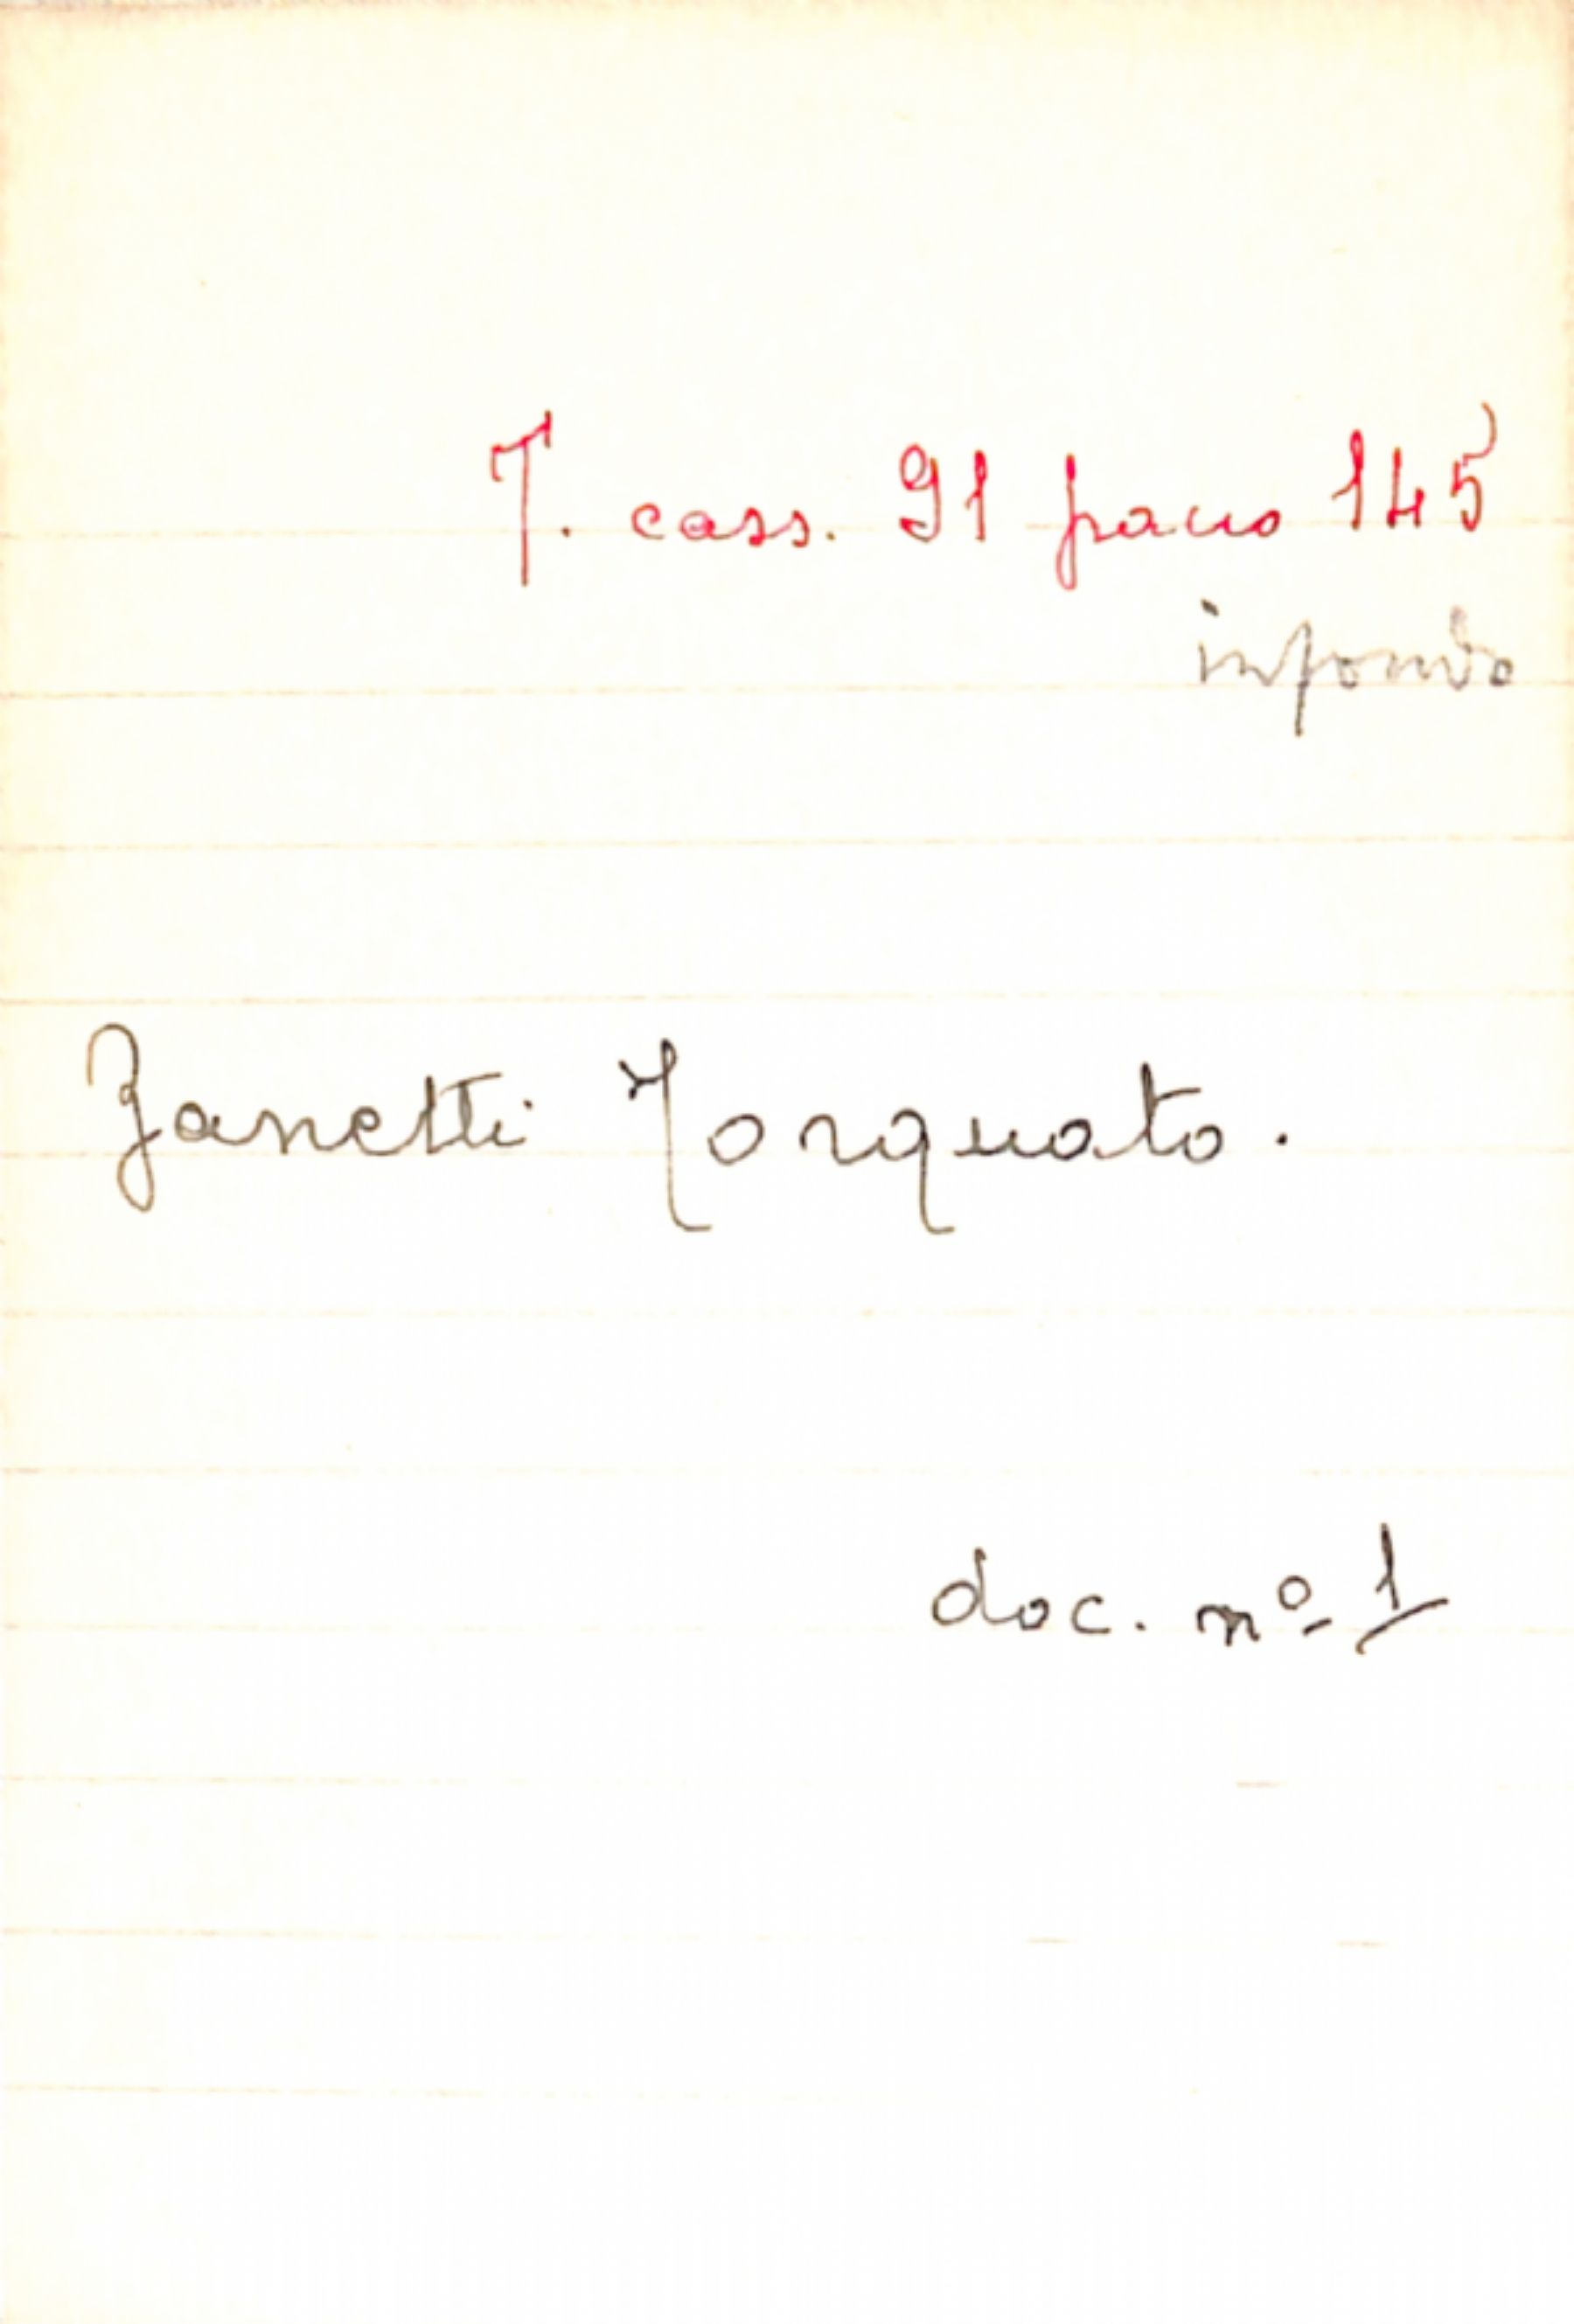 T. cass. 91 pacco 145
in fondo
Zanetti Torquato.
doc. nº 1